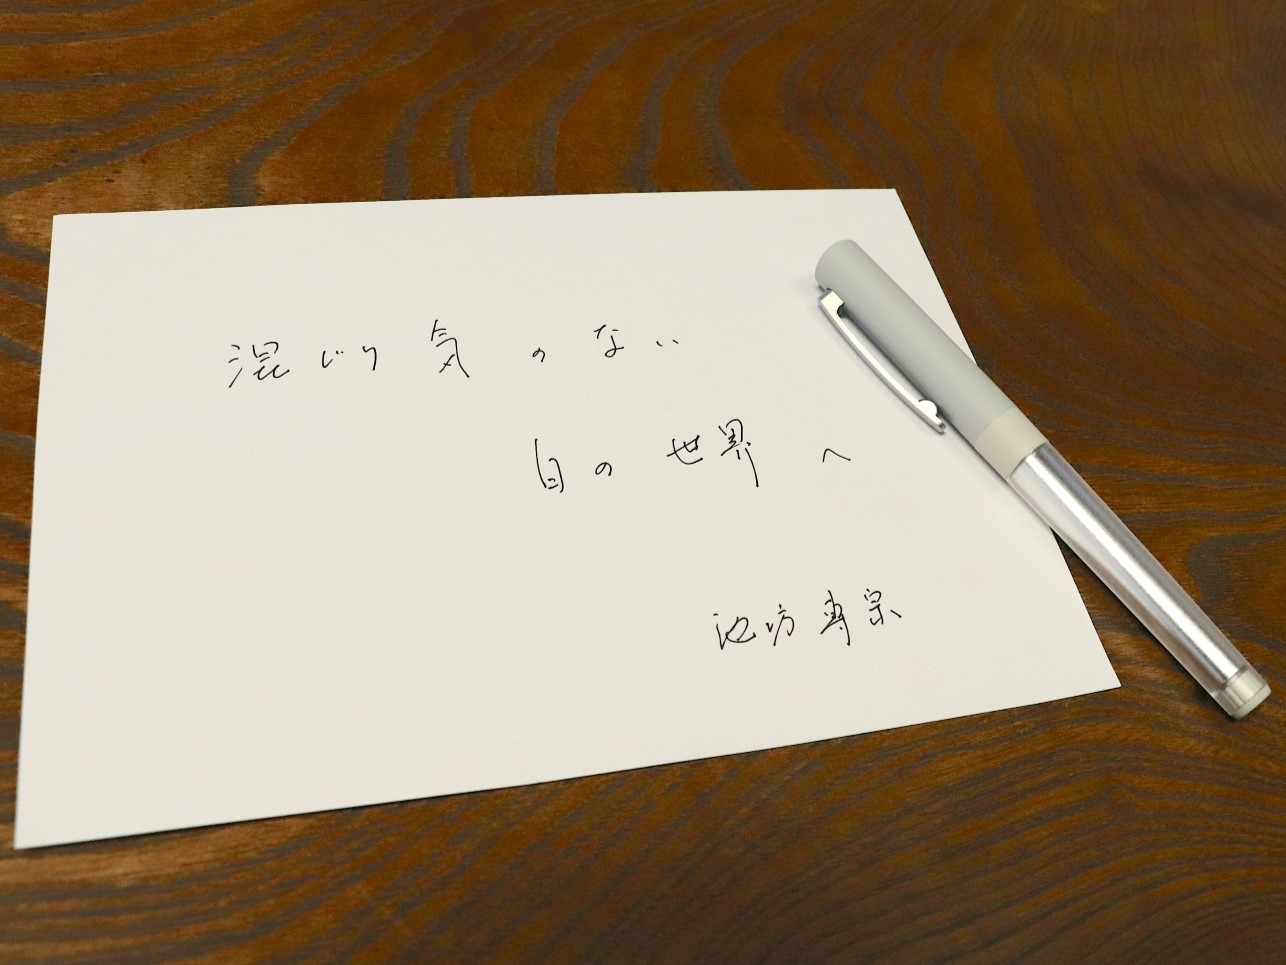 混じり気のない
白の世界へ
池坊専宗